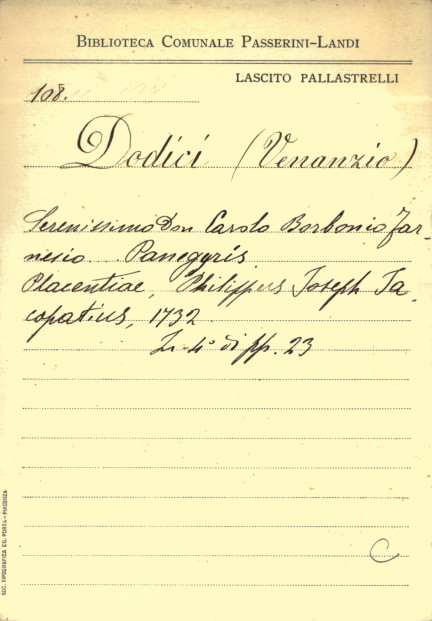 BIBLIOTECA COMUNALE PASSERINI-LANDI
LASCITO PALLASTRELLI
108.
Dodici (Venanzio)
Serenissimo Don Carolo Borbonio Far-
nesio... Panegyris
Placentiae, Philippus Joseph Ja-
copatius, 1732
In-4° di pp. 23
C
SOC. TIPOGRAFICA ED. PORTA - PIACENZA